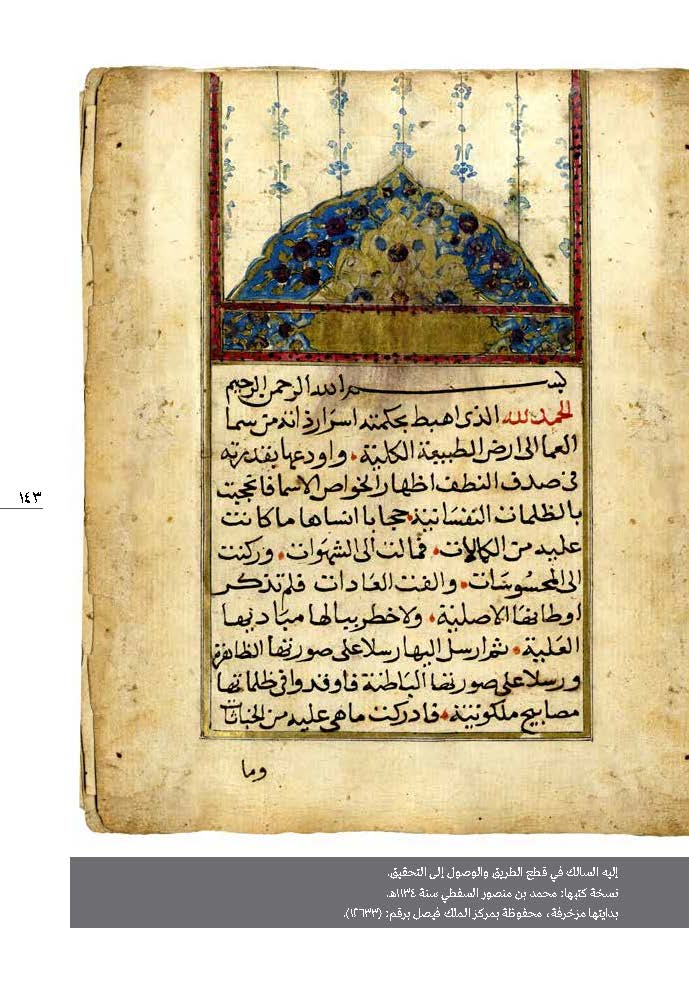 بسم الله الرحمن الرحيم
الحمد لله الذى اهبط بحكمته اسرار ذاته من سما
العما الى ارض الطبيعة الكلية، واودعها بقدرته
فى صدف النطف اظهار الخواص الاسما فاتحجبت
بالظلمات النفسانية، حجبا بانساها ما كانت
عليه من الكمالات، فمالت الى الشهوات، وركنت
الى المحسوسات، والفت العادات فلم تذكر
اوطانها الاصلية، ولا خطر ببالها مباديها
العلية، ثم ارسل اليها رسلا على صورتها الظاهرة
ورسلا على صورتها الباطنة فاوقدوا فى ظلماتها
مصابيح ملكوتية، فادركت ما هى عليه من
وما
١٤٣
إليه السالك في قطع الطريق والوصول إلى التحقيق.
نسخة كتبها: محمد بن منصور السفطي سنة ١١٣٤هـ.
بدايتها مزخرفة، محفوظة بمركز الملك فيصل برقم: (١٢٦٣٣).